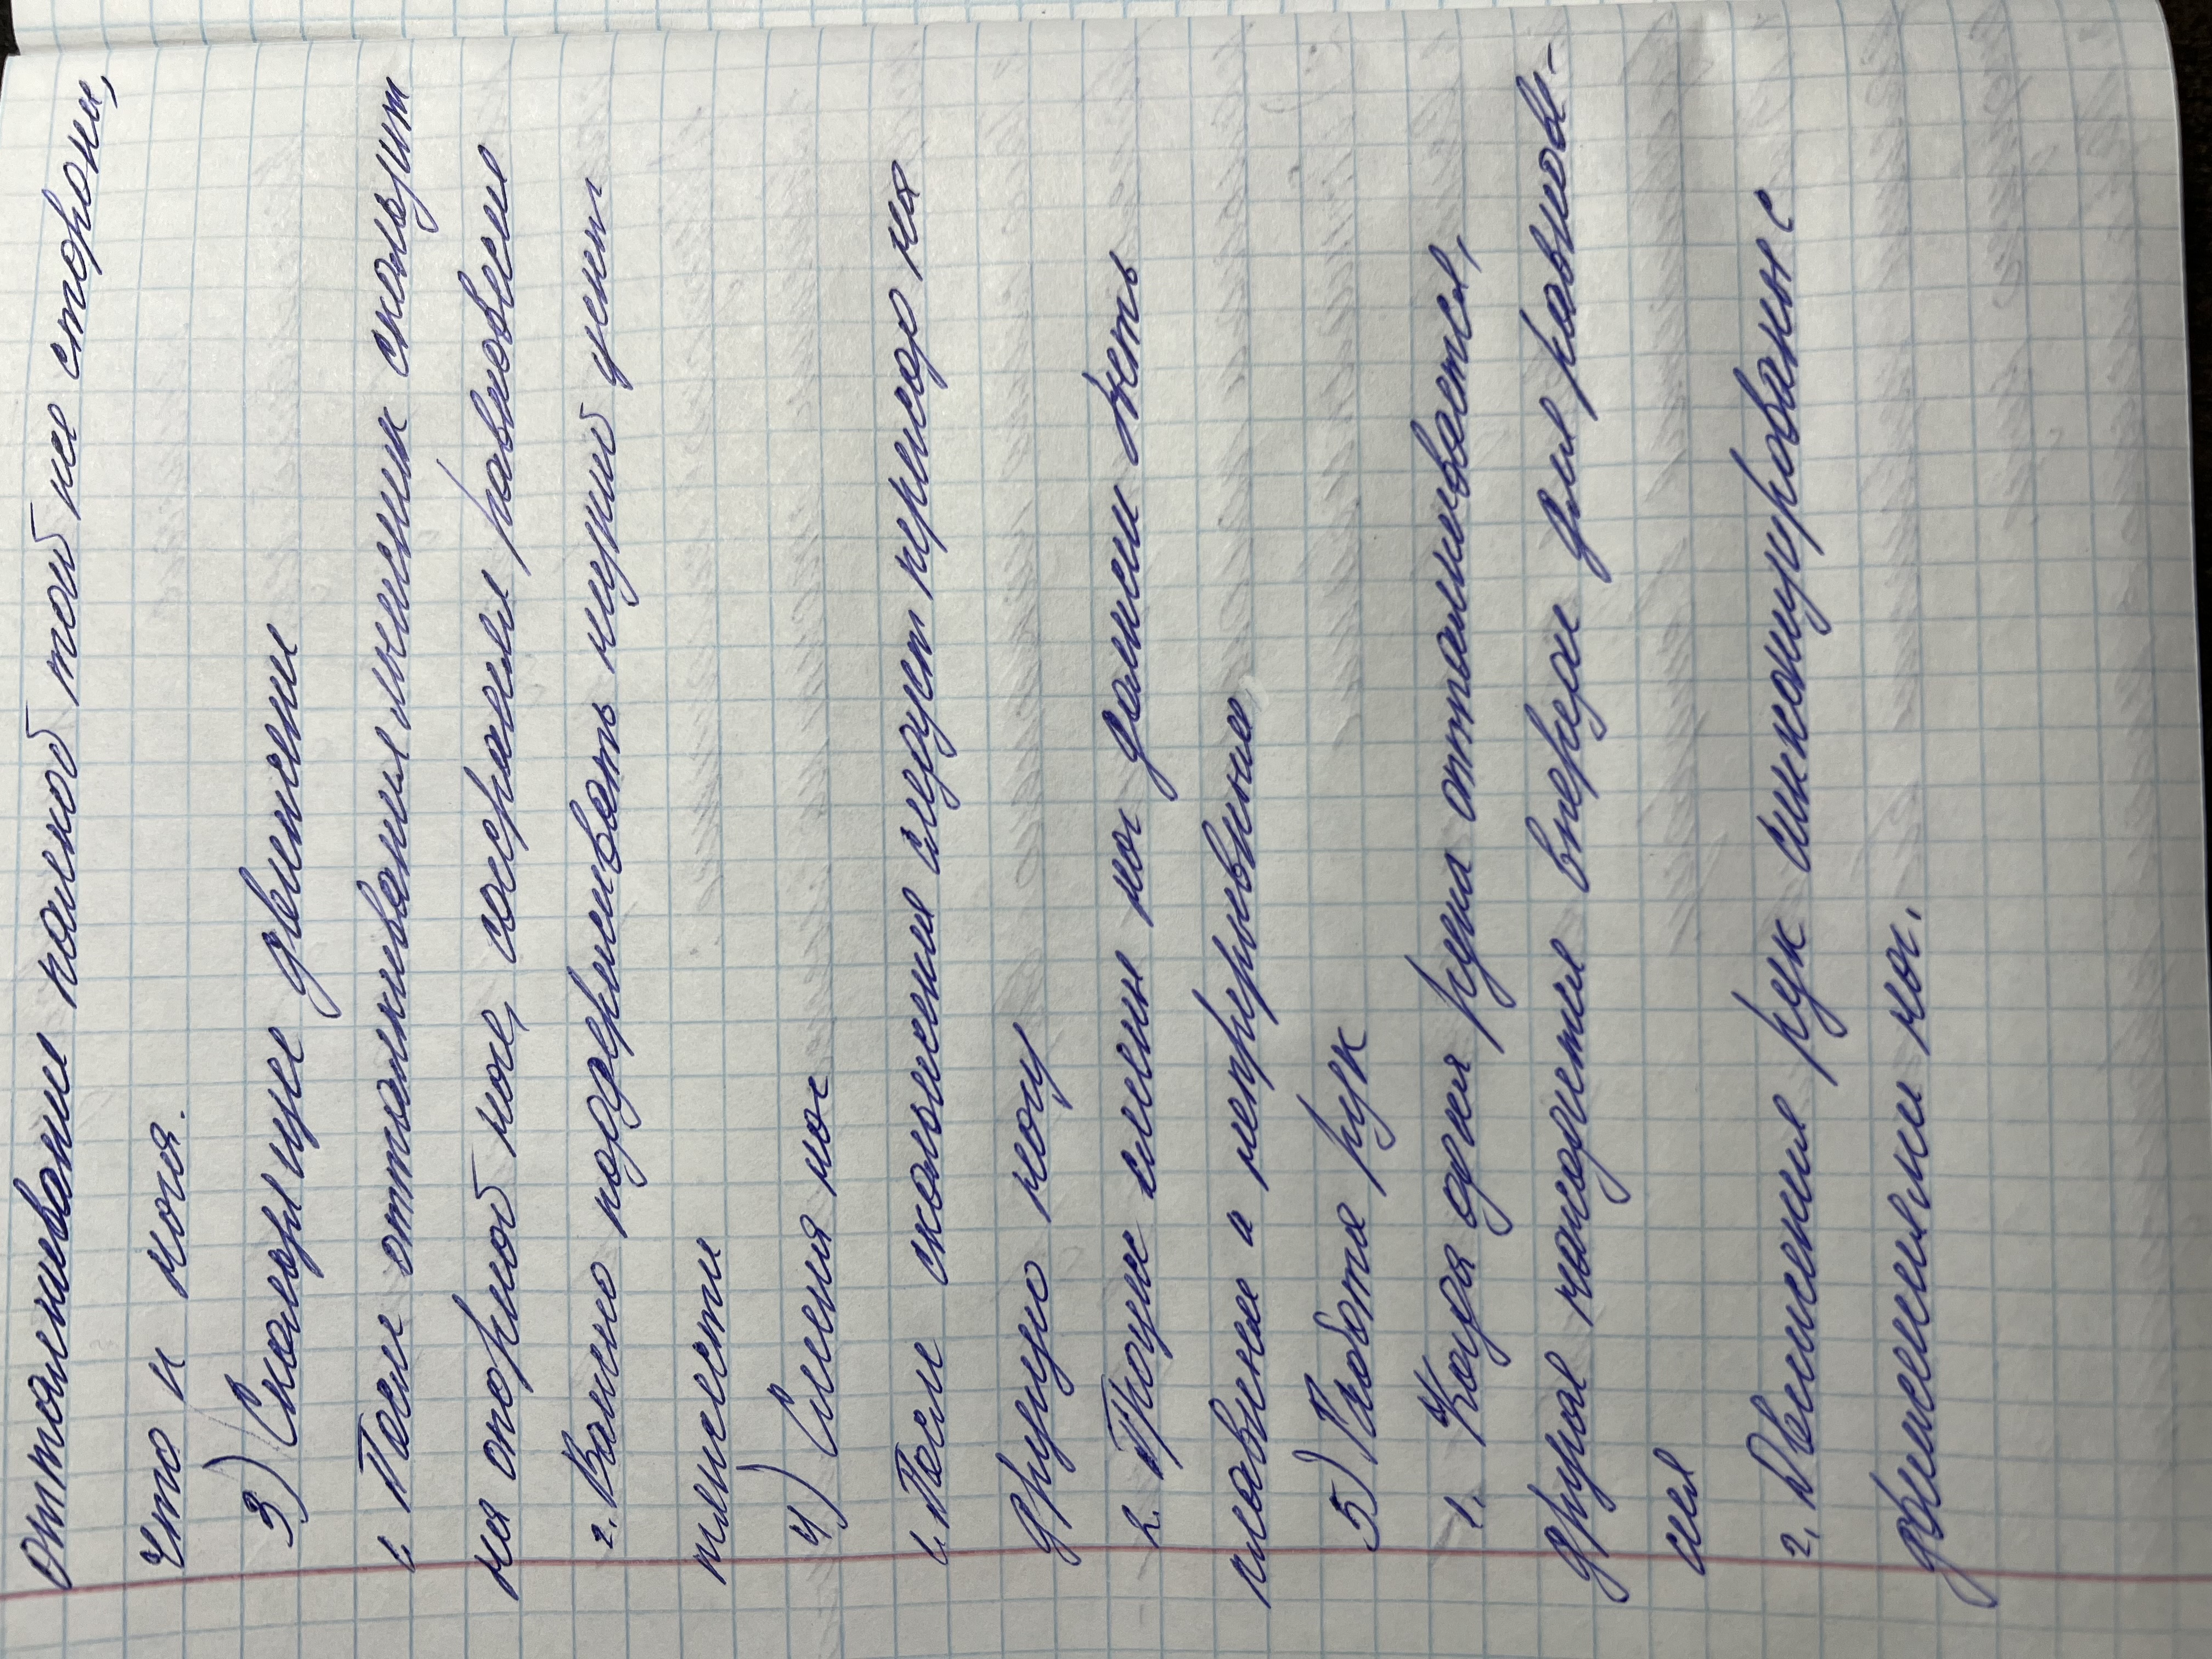 отталкивание палкой той же стороны,
что и нога.
3) Скользящее движение
1. После отталкивания лыжник скользит
на опорной ноге, сохраняя равновесие
2. Важно поддерживать низкий центр
тяжести
4) Смена ног
1. После скольжения следует переход на
другую ногу
2. Процесс смены ног должен быть
плавным и непрерывным
5) Работа рук
1. Когда одна рука отталкивается,
другая находится впереди для равнове-
сия
2. Движения рук синхронизированы с
движениями ног.